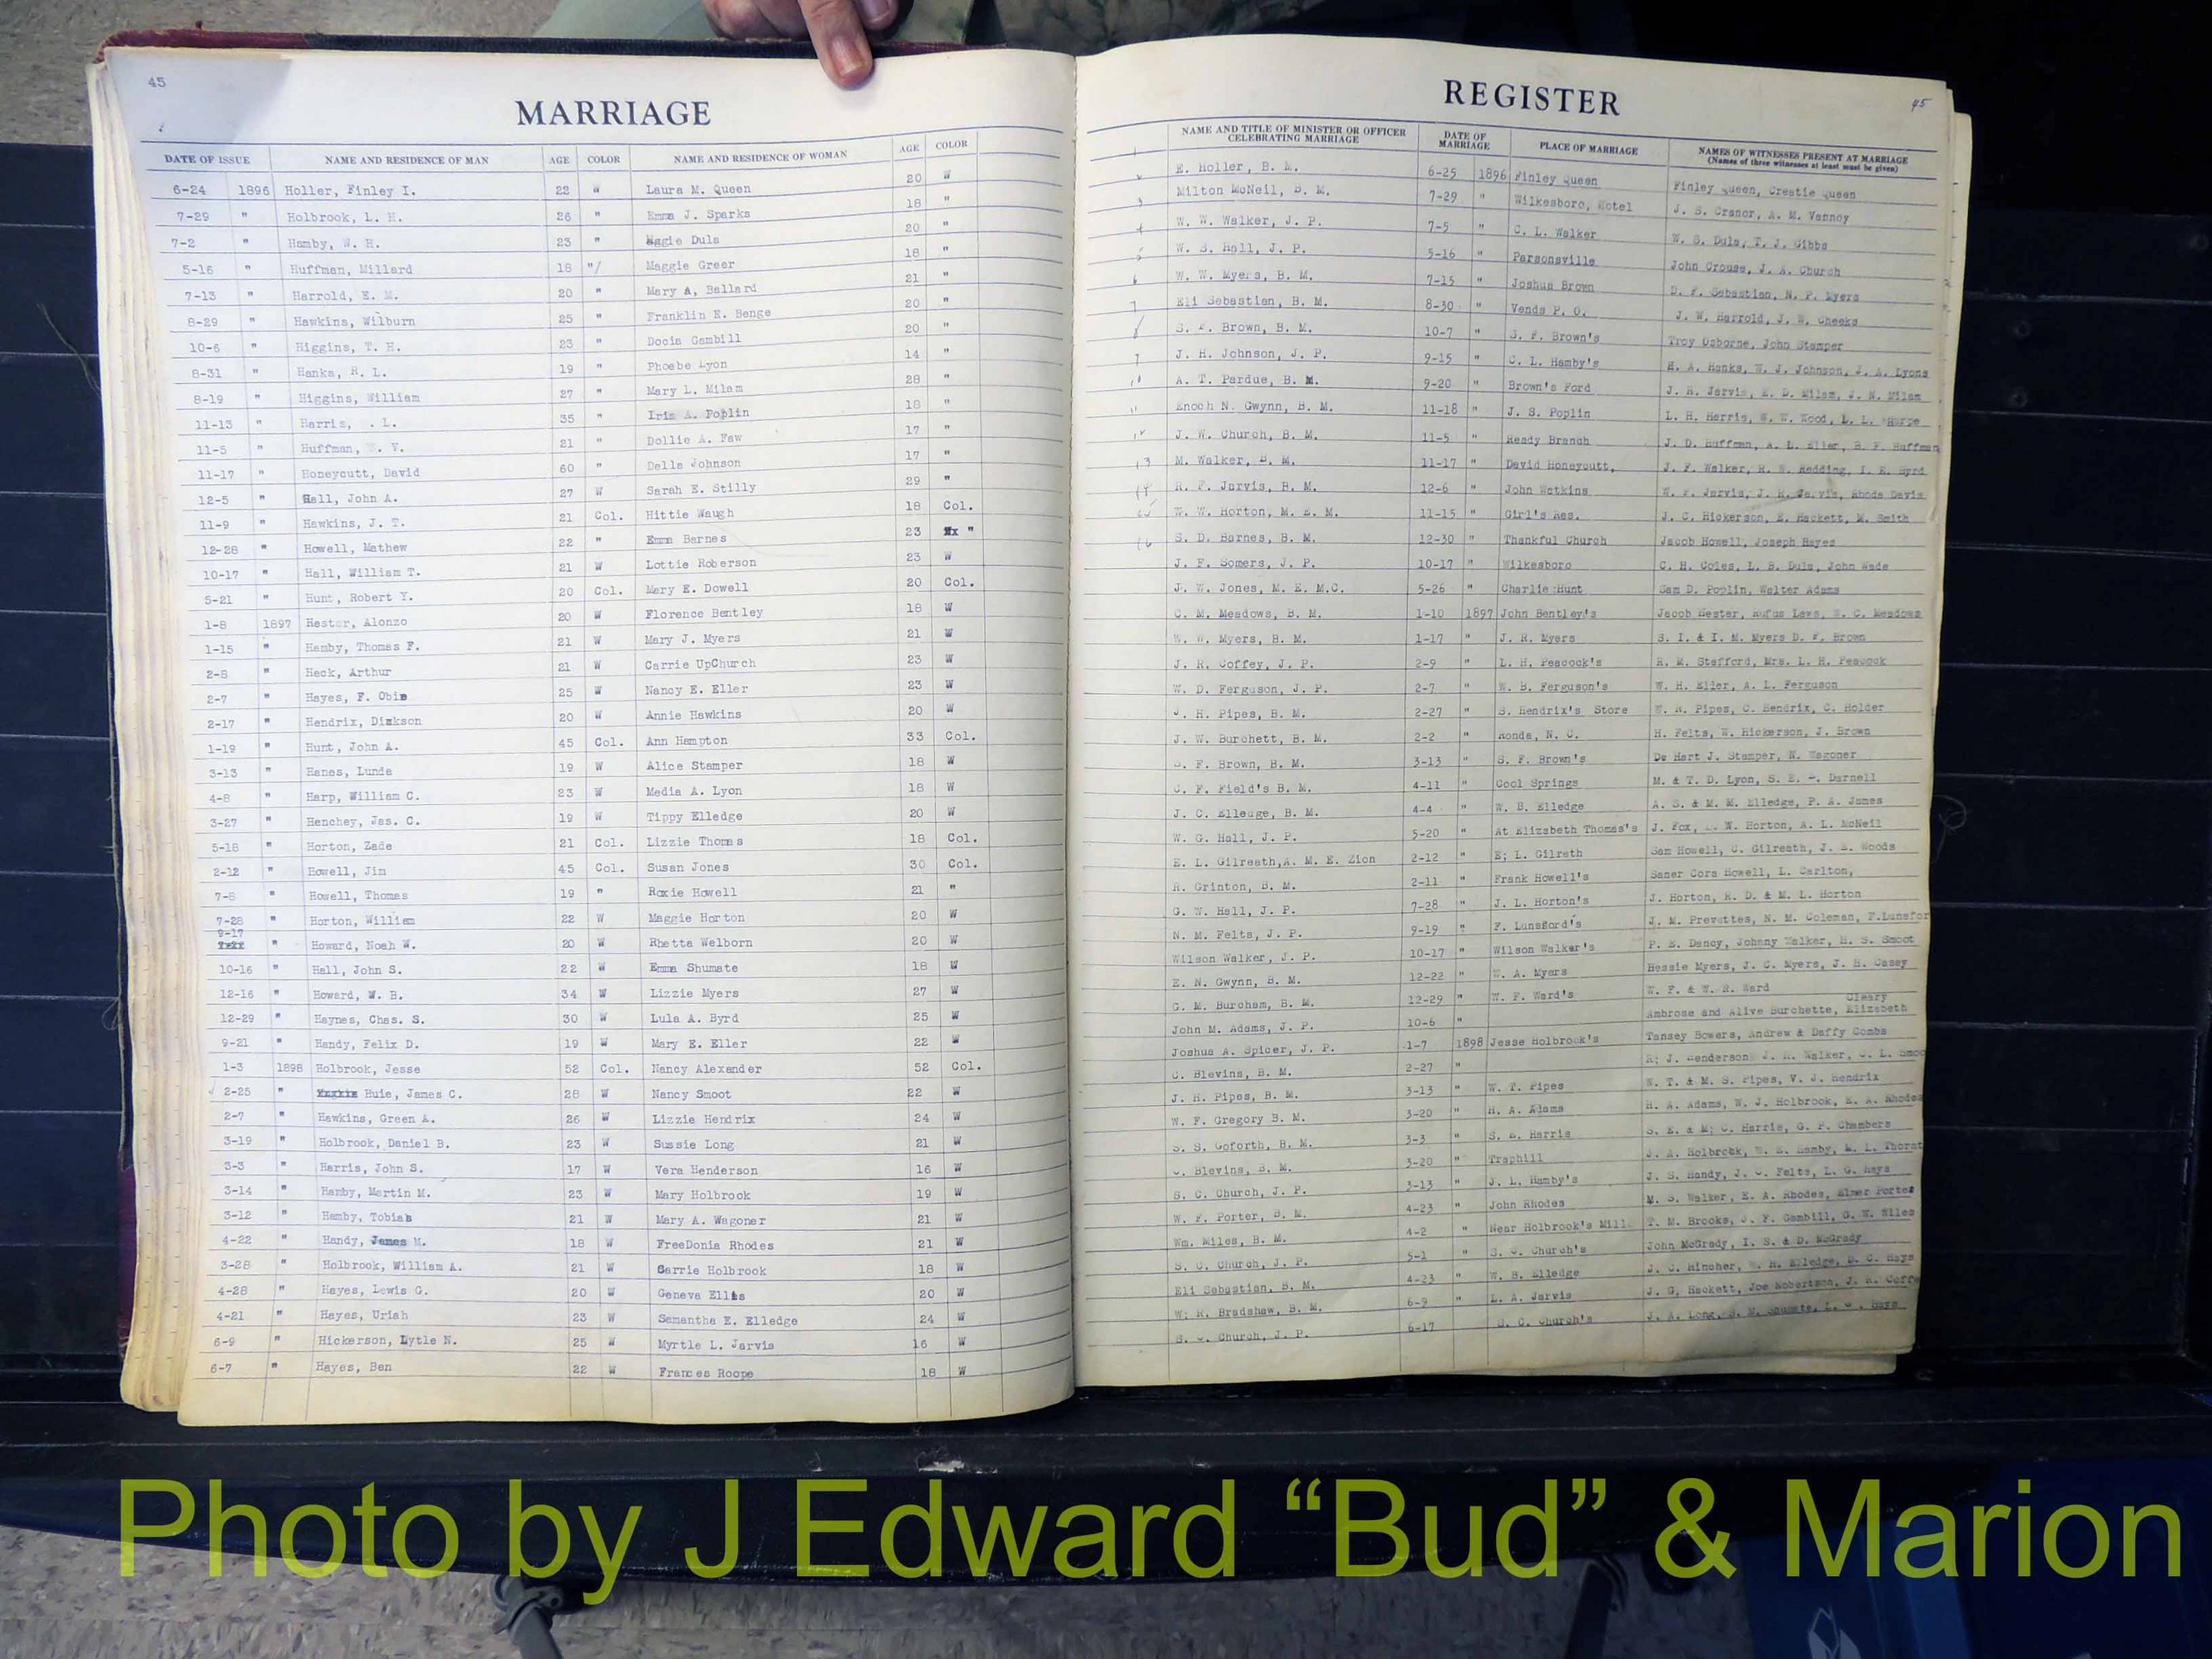 45
MARRIAGE
DATE OF ISSUE NAME AND RESIDENCE OF MAN AGE COLOR NAME AND RESIDENCE OF WOMAN AGE COLOR
6-24 1896 Holler, Finley I. 22 " Laura M. Queen 20 W
7-29 " Holbrook, L. H. 26 " Emma J. Sparks 18 "
7-2 " Hamby, W. H. 23 " Dula 20 "
5-16 " Huffman, Millard 18 "/ Maggie Greer 18 "
7-13 " Harrold, E. M. 20 " Mary A, Ballard 21 "
8-29 " Hawkins, Wilburn 25 " Franklin E. Benge 20 "
10-6 " Higgins, T. H. 23 " Docia Gambill 20 "
8-31 " Hanks, R. L. 19 " Phoebe Lyon 14 "
8-19 " Higgins, William 27 " Mary L. Milam 28 "
11-13 " Harris, . L. 35 " Iris A. Poplin 18 "
11-5 " Huffman, . V. 21 " Dollie A. Faw 17 "
11-17 " Honeycutt, David 60 " Della Johnson 17 "
12-5 " Hall, John A. 27 W Sarah E. Stilly 29 "
11-9 " Hawkins, J. T. 21 Col. Hittie Waugh 18 Col.
12-28 " Howell, Mathew 22 " Emma Barnes 23 "
10-17 " Hall, William T. 21 W Lottie Roberson 23 W
5-21 " Hunt, Robert Y. 20 Col. Mary E. Dowell 20 Col.
1-8 1897 Hester, Alonzo 20 W Florence Bentley 18 W
1-15 " Hamby, Thomas F. 21 W Mary J. Myers 21 W
2-8 " Heck, Arthur 21 W Carrie UpChurch 23 W
2-7 " Hayes, F. Obie 25 W Nancy E. Eller 23 W
2-17 " Hendrix, Dickson 20 W Annie Hawkins 20 W
1-19 " Hunt, John A. 45 Col. Ann Hampton 33 Col.
3-13 " Hanes, Lunda 19 W Alice Stamper 18 W
4-8 " Harp, William C. 23 W Media A. Lyon 18 W
3-27 " Henchey, Jas. C. 19 W Tippy Elledge 20 W
5-18 " Horton, Zade 21 Col. Lizzie Thomas 18 Col.
2-12 " Howell, Jim 45 Col. Susan Jones 30 Col.
7-8 " Howell, Thomas 19 " Roxie Howell 21 "
7-28 " Horton, William 22 W Maggie Horton 20 W
9-17 " Howard, Noah W. 20 W Rhetta Welborn 20 W
10-16 " Hall, John S. 22 W Emma Shumate 18 W
12-16 " Howard, W. B. 34 W Lizzie Myers 27 W
12-29 " Haynes, Chas. S. 30 W Lula A. Byrd 25 W
9-21 " Handy, Felix D. 19 W Mary E. Eller 22 W
1-3 1898 Holbrook, Jesse 52 Col. Nancy Alexander 52 Col.
2-25 " Huie, James C. 28 W Nancy Smoot 22 W
2-7 " Hawkins, Green A. 26 W Lizzie Hendrix 24 W
3-19 " Holbrook, Daniel B. 23 W Sussie Long 21 W
3-3 " Harris, John S. 17 W Vera Henderson 16 W
3-14 " Hamby, Martin M. 23 W Mary Holbrook 19 W
3-12 " Hamby, Tobias 21 W Mary A. Wagoner 21 W
4-22 " Handy, James M. 18 W FreeDonia Rhodes 21 W
3-28 " Holbrook, William A. 21 W Carrie Holbrook 18 W
4-28 " Hayes, Lewis G. 20 W Geneva Ellis 20 W
4-21 " Hayes, Uriah 23 W Samantha E. Elledge 24 W
6-9 " Hickerson, Lytle N. 25 W Myrtle L. Jarvis 16 W
6-7 " Hayes, Ben 22 W Frances Roope 18 W
REGISTER
45
NAME AND TITLE OF MINISTER OR OFFICER CELEBRATING MARRIAGE DATE OF MARRIAGE PLACE OF MARRIAGE NAMES OF WITNESSES PRESENT AT MARRIAGE
(Names of three witnesses at least must be given)
E. Holler, B. M. 6-25 1896 Finley Queen Finley Queen, Crestie Queen
Milton McNeil, B. M. 7-29 " Wilkesboro, Hotel J. S. Cranor, A. M. Vannoy
W. W. Walker, J. P. 7-5 " C. L. Walker W. S. Dula, T. J. Gibbs
W. S. Hall, J. P. 5-16 " Parsonsville John Crouse, J. A. Church
W. W. Myers, B. M. 7-15 " Joshua Brown D. F. Sebastian, N. P. Myers
Eli Sebastian, B. M. 8-30 " Vends P. O. J. W. Harrold, J. W. Cheeks
S. F. Brown, B. M. 10-7 " S. F. Brown's Troy Osborne, John Stamper
J. H. Johnson, J. P. 9-15 " C. L. Hamby's H. A. Hanks, W. J. Johnson, J. A. Lyons
A. T. Pardue, B. M. 9-20 " Brown's Ford J. H. Jarvis, E. D. Milam, J. N. Milam
Enoch N. Gwynn, B. M. 11-18 " J. S. Poplin L. H. Harris, W. W. Wood, L. L.
J. W. Church, B. M. 11-5 " Ready Branch J. D. Huffman, A. L. Eller, B. F. Huffman
M. Walker, B. M. 11-17 " David Honeycutt, J. F. Walker, R. W. Redding, I. E. Byrd
R. F. Jarvis, B. M. 12-6 " John Watkins W. F. Jarvis, J. H. Jarvis, Rhoda Davis
W. W. Horton, M. E. M. 11-15 " Girl's Res. J. C. Hickerson, E. Hackett, M. Smith
S. D. Barnes, B. M. 12-30 " Thankful Church Jacob Howell, Joseph Hayes
J. F. Somers, J. P. 10-17 " Wilkesboro C. H. Coles, L. B. Dula, John Wade
J. W. Jones, M. E. M.C. 5-26 " Charlie Hunt Sam D. Poplin, Walter Adams
C. M. Meadows, B. M. 1-10 1897 John Bentley's Jacob Hester, Rufus Laws, W. C. Meadows
W. W. Myers, B. M. 1-17 " J. R. Myers S. I. & I. M. Myers D. F. Brown
J. R. Coffey, J. P. 2-9 " L. H. Peacock's R. M. Stafford, Mrs. L. H. Peacock
W. D. Ferguson, J. P. 2-7 " W. B. Ferguson's W. H. Eller, A. L. Ferguson
J. H. Pipes, B. M. 2-27 " S. Hendrix's Store W. R. Pipes, C. Hendrix, C. Holder
J. W. Burchett, B. M. 2-2 " Ronda, N. C. H. Felts, W. Hickerson, J. Brown
S. F. Brown, B. M. 3-13 " S. F. Brown's De Hart J. Stamper, N. Wagoner
C. F. Field's B. M. 4-11 " Cool Springs M. & T. D. Lyon, S. E. Darnell
J. C. Elledge, B. M. 4-4 " W. B. Elledge A. S. & M. M. Elledge, P. A. James
W. G. Hall, J. P. 5-20 " At Elizabeth Thomas's J. Fox, W. Horton, A. L. McNeil
E. L. Gilreath, A. M. E. Zion 2-12 " E; L. Gilreth Sam Howell, C. Gilreath, J. Woods
R. Grinton, B. M. 2-11 " Frank Howell's Saner Cora Howell, L. Carlton,
G. W. Hall, J. P. 7-28 " J. L. Horton's J. Horton, R. D. & M. L. Horton
N. M. Felts, J. P. 9-19 " F. Lunsford's J. M. Prevettes, N. M. Coleman, F.Lunsfor
Wilson Walker, J. P. 10-17 " Wilson Walker's P. E. Dancy, Johnny Walker, H. S. Smoot
E. N. Gwynn, B. M. 12-22 " W. A. Myers Hessie Myers, J. C. Myers, J. H. Casey
G. M. Burcham, B. M. 12-29 " W. F. Ward's W. F. & W. R. Ward
John M. Adams, J. P. 10-6 " Ambrose and Alive Burchette, Cleary Elizabeth
Joshua A. Spicer, J. P. 1-7 1898 Jesse Holbrook's Tansey Bowers, Andrew & Daffy Combs
C. Blevins, B. M. 2-27 " R; J. Henderson J. R. Walker, C. L. Smoo
J. H. Pipes, B. M. 3-13 " W. T. Pipes W. T. & M. S. Pipes, V. J. Hendrix
W. F. Gregory B. M. 3-20 " H. A. Adams H. A. Adams, W. J. Holbrook, E. A. Rhodes
S. S. Goforth, B. M. 3-3 " S. E. Harris S. E. & M; C. Harris, G. P. Chambers
C. Blevins, B. M. 3-20 " Traphill J. A. Holbrook, W. E. Hamby, M. L. Thorst
S. C. Church, J. P. 3-13 " J. L. Hamby's J. S. Handy, J. C. Felts, L. G. Hays
W. F. Porter, B. M. 4-23 " John Rhodes M. S. Walker, E. A. Rhodes, Elmer Porter
Wm. Miles, B. M. 4-2 " Near Holbrook's Mill T. M. Brooks, J. F. Gambill, G. W. Wiles
S. C. Church, J. P. 5-1 " S. C. Church's John McGrady, I. S. & D. McGrady
Eli Sebastian, B. M. 4-23 " W. B. Elledge J. C. Hincher, W. H. Elledge, D. C. Hays
W; R. Bradshaw, B. M. 6-9 " L. A. Jarvis J. G, Hackett, Joe Robertson, J. R. Coffe
S. C. Church, J. P. 6-17 S. C. Church's J. A. Long, J. M. Shumate, L. Hays
Photo by J Edward “Bud” & Marion